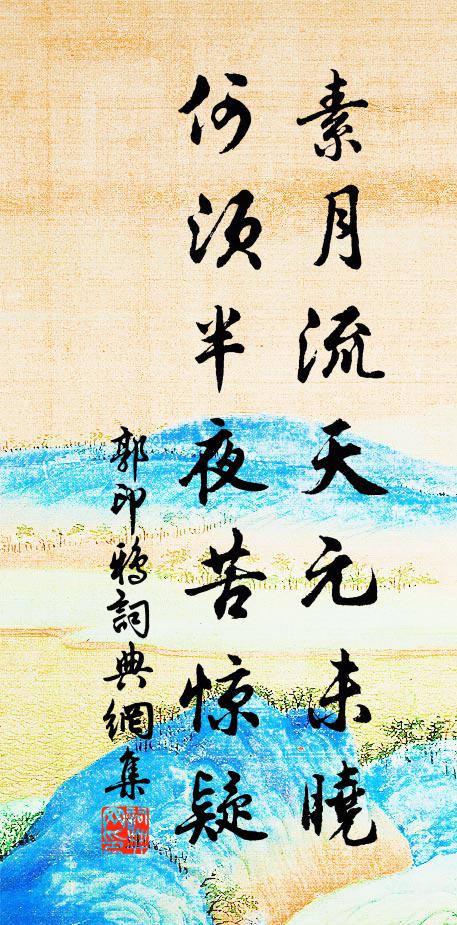 素月流天元未曉
何須半夜苦惊疑
郭印鴉詞典網集